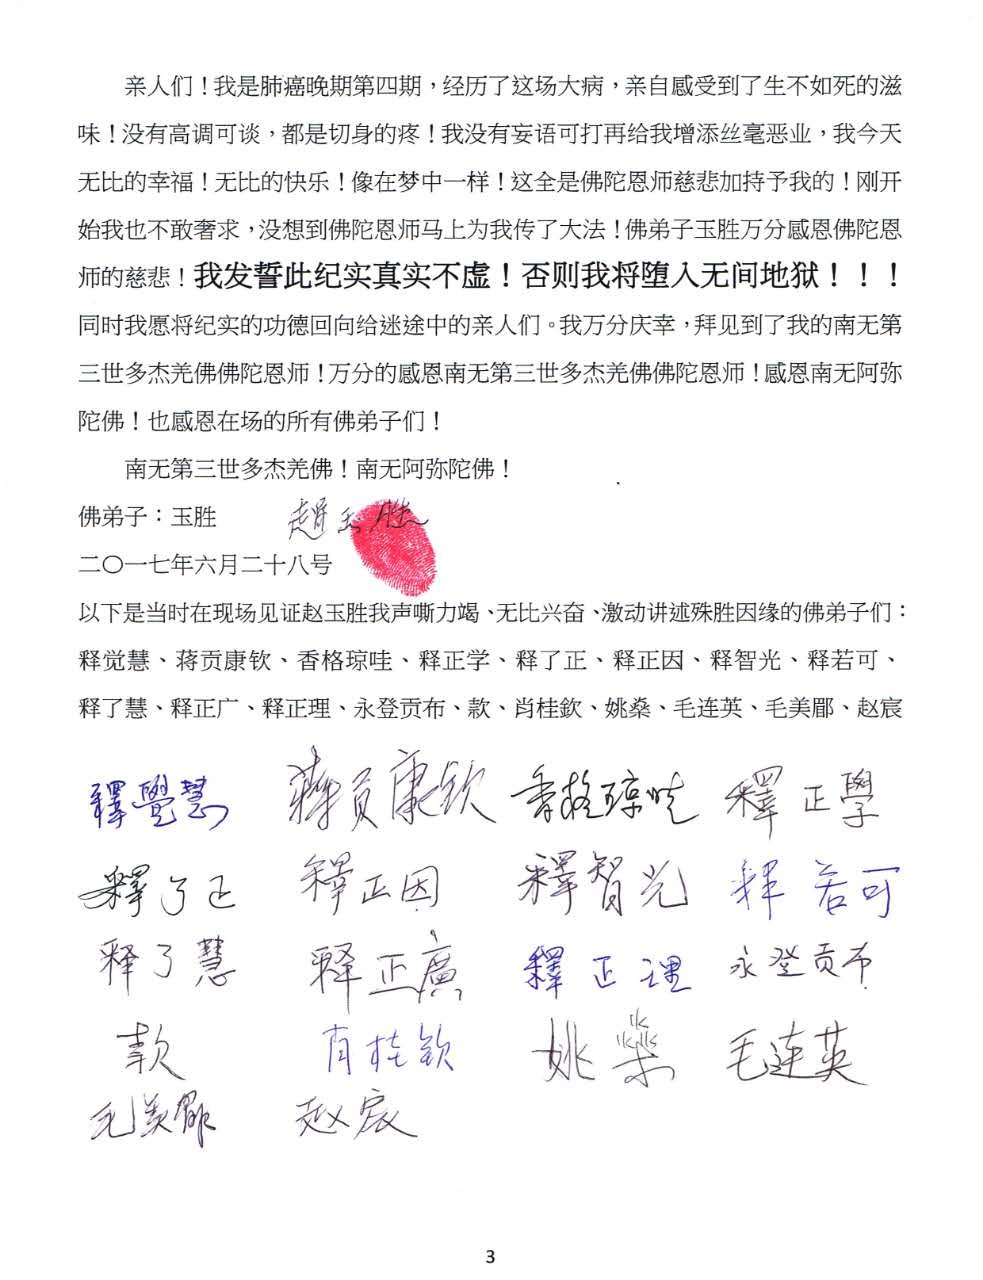 亲人们！我是肺癌晚期第四期，经历了这场大病，亲自感受到了生不如死的滋
味！没有高调可谈，都是切身的疼！我没有妄语可打再给我增添丝毫恶业，我今天
无比的幸福！无比的快乐！像在梦中一样！这全是佛陀恩师慈悲加持予我的！刚开
始我也不敢奢求，没想到佛陀恩师马上为我传了大法！佛弟子玉胜万分感恩佛陀恩
师的慈悲！我发誓此纪实真实不虚！否则我将堕入无间地狱！！！
同时我愿将纪实的功德回向给迷途中的亲人们。我万分庆幸，拜见到了我的南无第
三世多杰羌佛佛陀恩师！万分的感恩南无第三世多杰羌佛佛陀恩师！感恩南无阿弥
陀佛！也感恩在场的所有佛弟子们！
南无第三世多杰羌佛！南无阿弥陀佛！
佛弟子：玉胜 趙玉胜
二〇一七年六月二十八号
以下是当时在现场见证赵玉胜我声嘶力竭、无比兴奋、激动讲述殊胜因缘的佛弟子们：
释觉慧、蒋贡康钦、香格琼哇、释正学、释了正、释正因、释智光、释若可、
释了慧、释正广、释正理、永登贡布、款、肖桂欽、姚燊、毛连英、毛美郿、赵宸
釋覺慧 蔣貢康欽 香格琼哇 釋正學
釋了正 釋正因 釋智光 释若可
释了慧 释正廣 釋正理 永登贡布
款 肖桂欽 姚燊 毛连英
毛美郿 赵宸
3